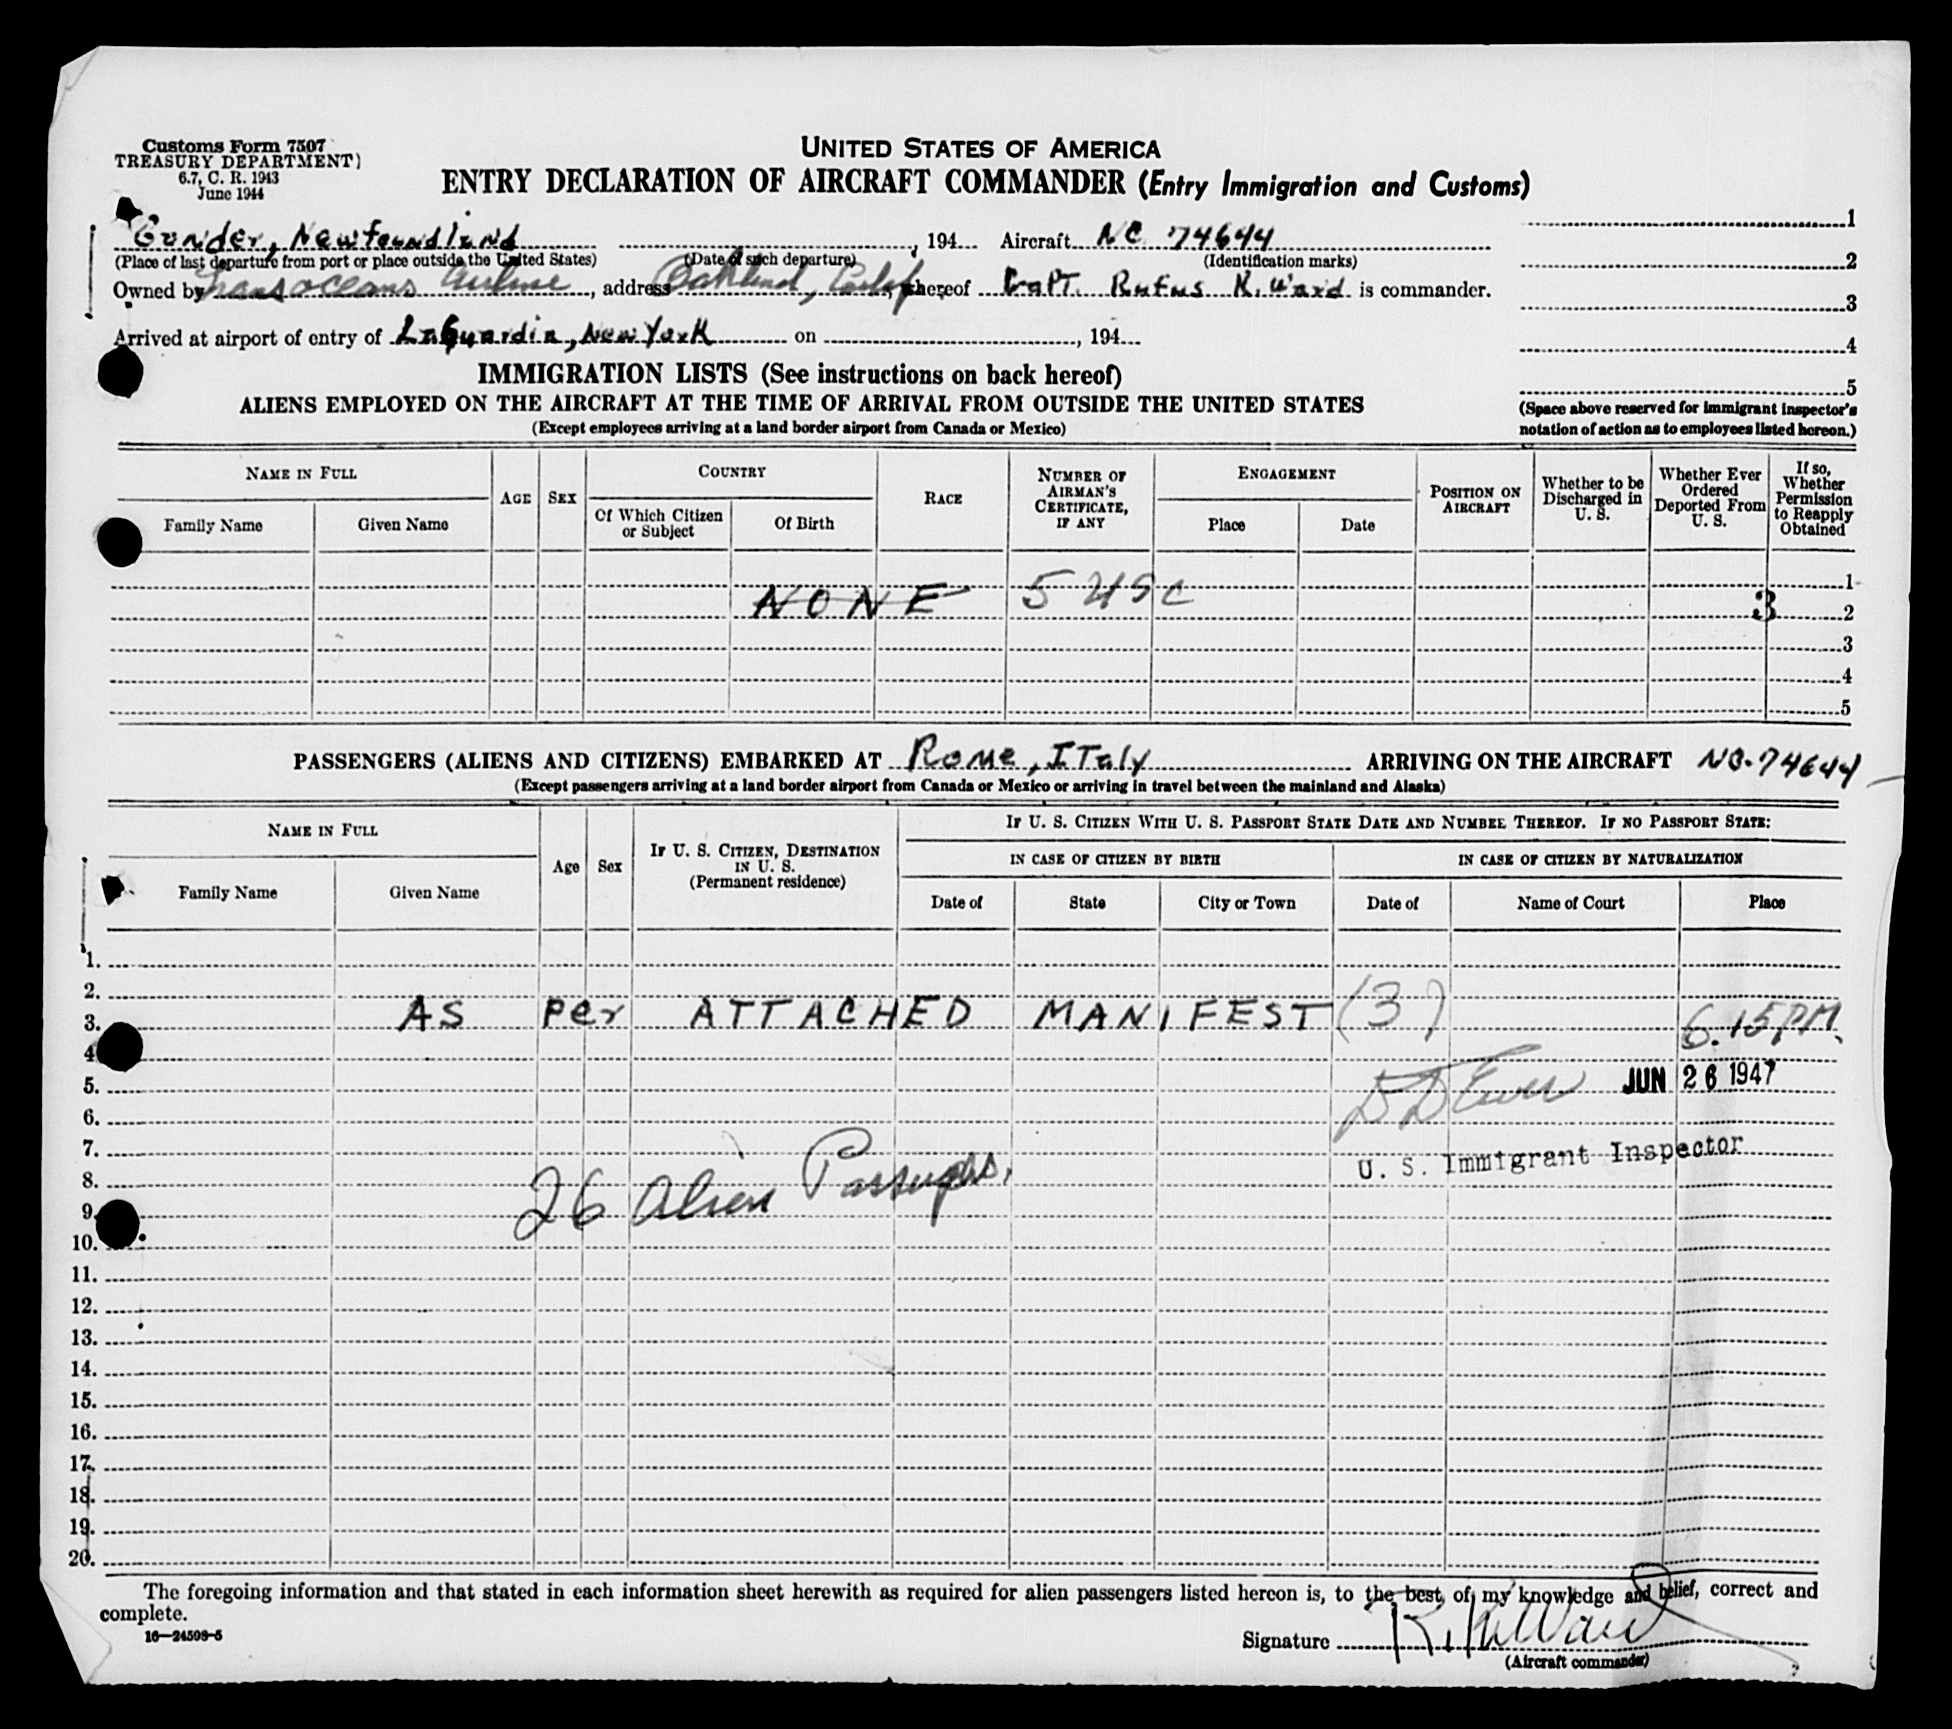 Customs Form 7507
TREASURY DEPARTMENT)
6.7, C. R. 1943
June 1944
UNITED STATES OF AMERICA
ENTRY DECLARATION OF AIRCRAFT COMMANDER (Entry Immigration and Customs)
Gander, Newfoundland , 194 Aircraft NC 74644
(Place of last departure from port or place outside the United States) (Date of such departure) (Identification marks)
Owned by Transoceans Airline , address Oakland, Calif , whereof Capt. Rufus K. Ward is commander.
Arrived at airport of entry of LaGuardia, New York on , 194
1
2
3
4
5
(Space above reserved for immigrant inspector's
notation of action as to employees listed hereon.)
IMMIGRATION LISTS (See instructions on back hereof)
ALIENS EMPLOYED ON THE AIRCRAFT AT THE TIME OF ARRIVAL FROM OUTSIDE THE UNITED STATES
(Except employees arriving at a land border airport from Canada or Mexico)
NAME IN FULL
Family Name
Given Name
AGE
SEX
COUNTRY
Of Which Citizen
or Subject
Of Birth
RACE
NUMBER OF
AIRMAN'S
CERTIFICATE,
IF ANY
ENGAGEMENT
Place
Date
POSITION ON
AIRCRAFT
Whether to be
Discharged in
U. S.
Whether Ever
Ordered
Deported From
U. S.
If so,
Whether
Permission
to Reapply
Obtained
1
NONE 5 USC 3 2
3
4
5
PASSENGERS (ALIENS AND CITIZENS) EMBARKED AT Rome, ITaly ARRIVING ON THE AIRCRAFT NC-74644
(Except passengers arriving at a land border airport from Canada or Mexico or arriving in travel between the mainland and Alaska)
NAME IN FULL
Family Name
Given Name
Age
Sex
IF U. S. CITIZEN, DESTINATION
IN U. S.
(Permanent residence)
IF U. S. CITIZEN WITH U. S. PASSPORT STATE DATE AND NUMBER THEREOF. IF NO PASSPORT STATE:
IN CASE OF CITIZEN BY BIRTH
IN CASE OF CITIZEN BY NATURALIZATION
Date of
State
City or Town
Date of
Name of Court
Place
1.
2.
3. AS Per ATTACHED MANIFEST (3) 6.15PM.
4.
5. JUN 26 1947
6.
7. U. S. Immigrant Inspector
8. 26 Alien Passengers.
9.
10.
11.
12.
13.
14.
15.
16.
17.
18.
19.
20.
The foregoing information and that stated in each information sheet herewith as required for alien passengers listed hereon is, to the best of my knowledge and belief, correct and
complete.
16—24598-5
Signature R. K. Ward
(Aircraft commander)